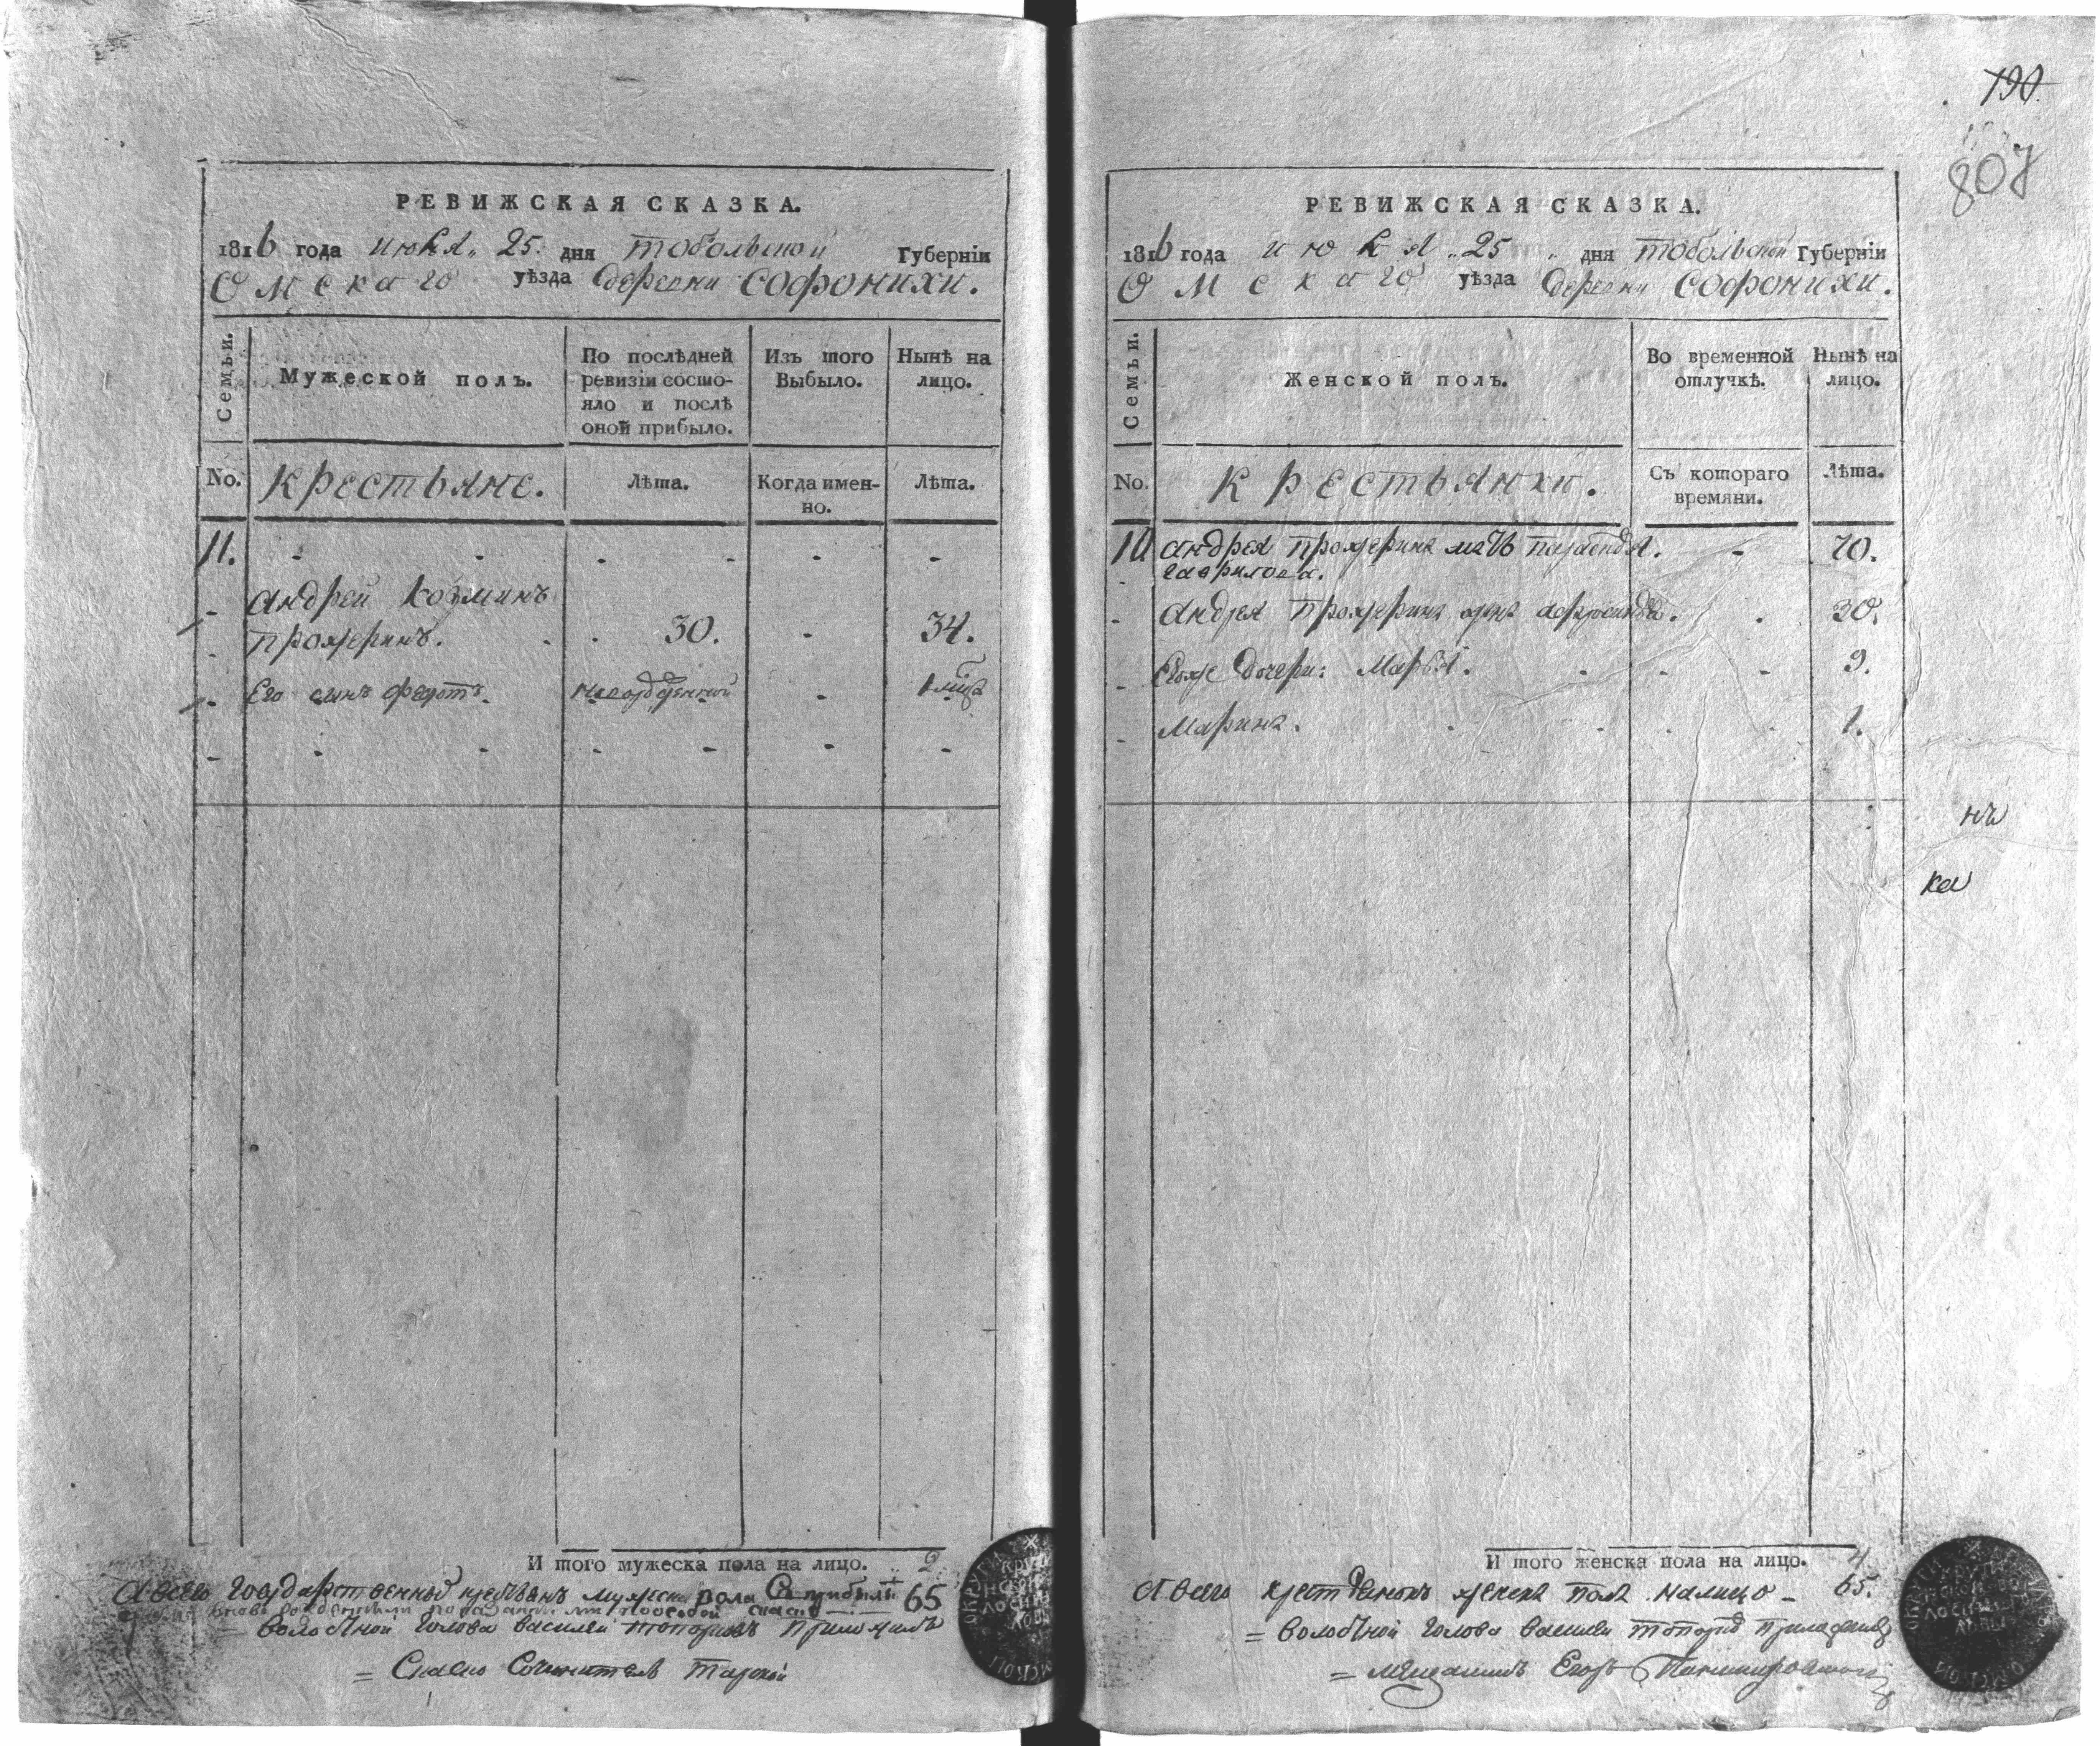 РЕВИЖСКАЯ СКАЗКА.
1816 года июля 25. дня тобольской Губерніи
Омскаго уѣзда деревни Софонихи.
Семьи.
Мужеской полъ.
По послѣдней ревизіи состояло и послѣ оной прибыло.
Изъ того Выбыло.
Нынѣ на лицо.
No.
Крестьяне.
Лѣта.
Когда именно.
Лѣта.
11.
андрей Козминъ
прожеринъ. 30. 34.
Его сынъ федотъ. новорожденной 1 мца
И того мужеска пола на лицо. 2.
А всего государственныхъ крестьянъ мужеска пола 65
Волостной голова василей топоровъ приложилъ
190.
807
РЕВИЖСКАЯ СКАЗКА.
1816 года июля 25 дня тобольской Губерніи
Омскаго уѣзда деревни Софонихи.
Семьи.
Женской полъ.
Во временной отлучкѣ.
Нынѣ на лицо.
No.
Крестьянки.
Съ котораго времяни.
Лѣта.
11
андрея прожерина мать 70.
гаврилова.
андрея прожерина жена 30.
Егоже дочери: Марья. 9.
Марина. 1.
нъ
ка
И того женска пола на лицо. 4.
А всего крестьянокъ женска пола налицо 65.
Волостной голова василей топоровъ
мещанинъ Егоръ